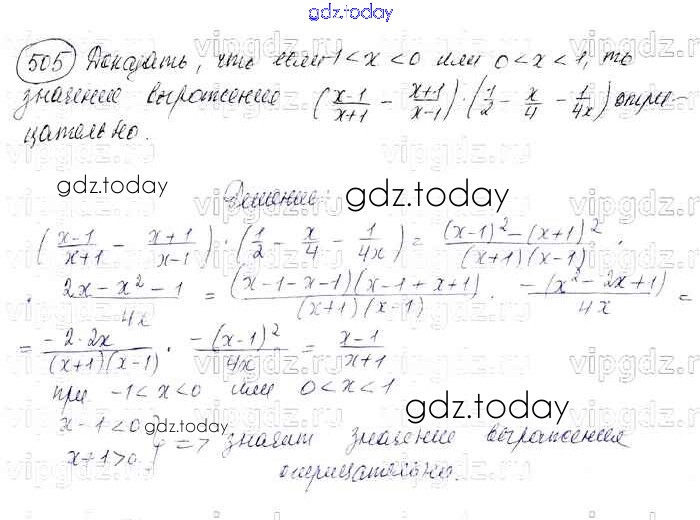 gdz.today
505 Доказать, что если -1 < x < 0 или 0 < x < 1, то
значение выражения ( (x-1)/(x+1) - (x+1)/(x-1) ) · ( 1/2 - x/4 - 1/(4x) ) отри-
цательно.
gdz.today gdz.today
Решение:
( (x-1)/(x+1) - (x+1)/(x-1) ) · ( 1/2 - x/4 - 1/(4x) ) = ((x-1)² - (x+1)²)/((x+1)(x-1)) ·
· (2x - x² - 1)/(4x) = ((x-1-x-1)(x-1+x+1))/((x+1)(x-1)) · (-(x² - 2x + 1))/(4x) =
= (-2·2x)/((x+1)(x-1)) · (-(x-1)²)/(4x) = (x-1)/(x+1)
при -1 < x < 0 или 0 < x < 1
gdz.today
x-1 < 0 } => значит значение выражения
x+1 > 0 отрицательно.
gdz.today